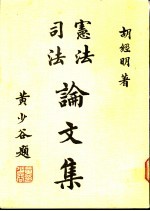 胡經明著
憲法
司法
論文集
黃少谷題